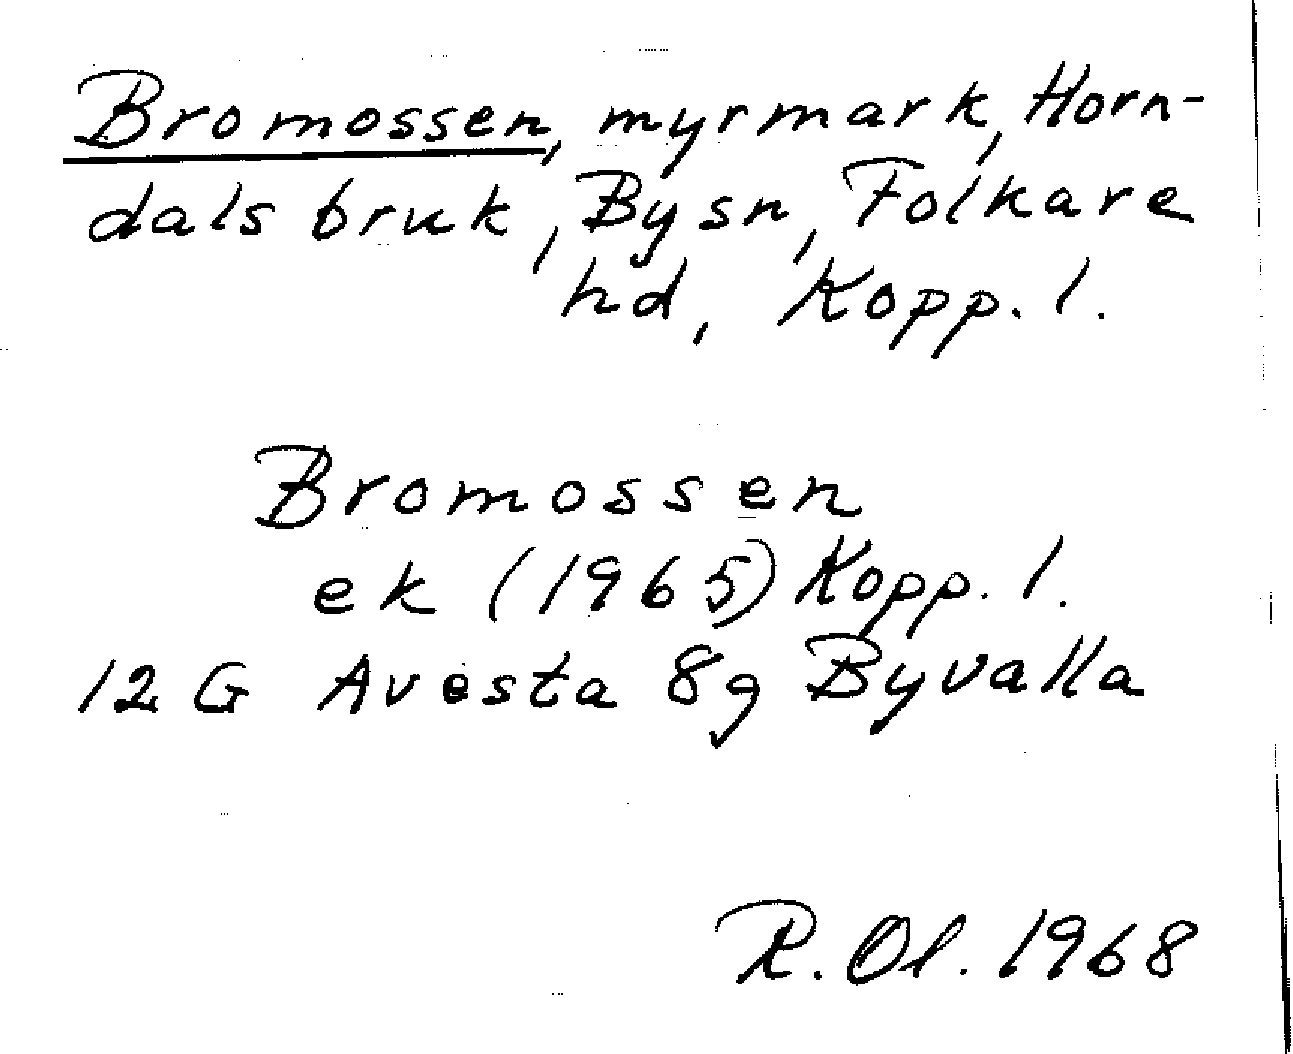 Bromossen, myrmark, Horn-
dals bruk, By sn, Folkare
hd, Kopp. l.
Bromossen
ek (1965) Kopp. l.
12 G Avesta 8g Byvalla
R. Ol. 1968